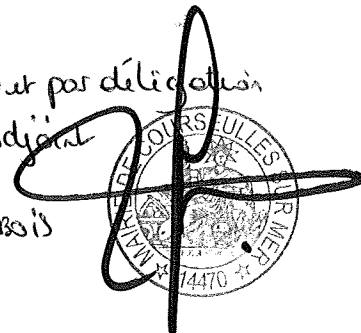 et par délégation
adjoint
BOIS
MAIRIE DE COURSEULLES SUR MER
14470